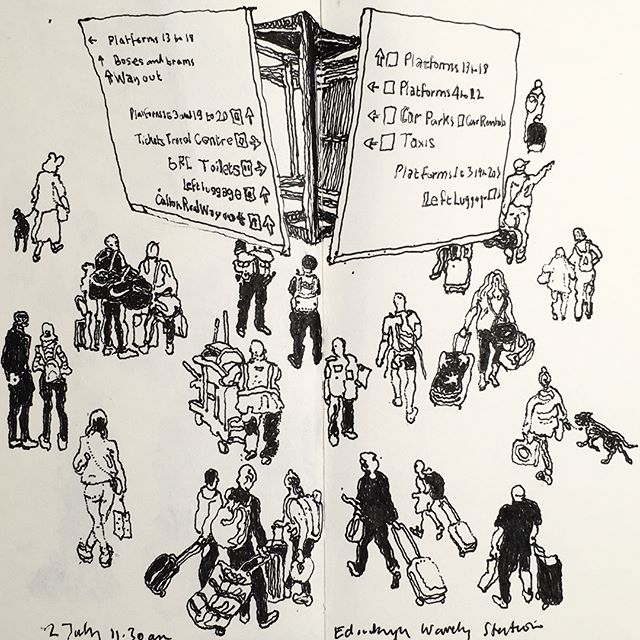 ← Platforms 13 to 18
↑ Boses and trams
↑ Way out
Platforms 1 3 and 19 to 20 ↑
Tickets Travel Centre →
Toilets →
Left luggage ↑
Calton Rod Way out ↑
↑ Platforms 13 to 18
← Platforms 4 to 12
← Car Parks Car Rentals
← Taxis
Platforms 1 to 3 19 to 20
Left Luggage
2 July 11.30 am
Edinburgh Wavely Station